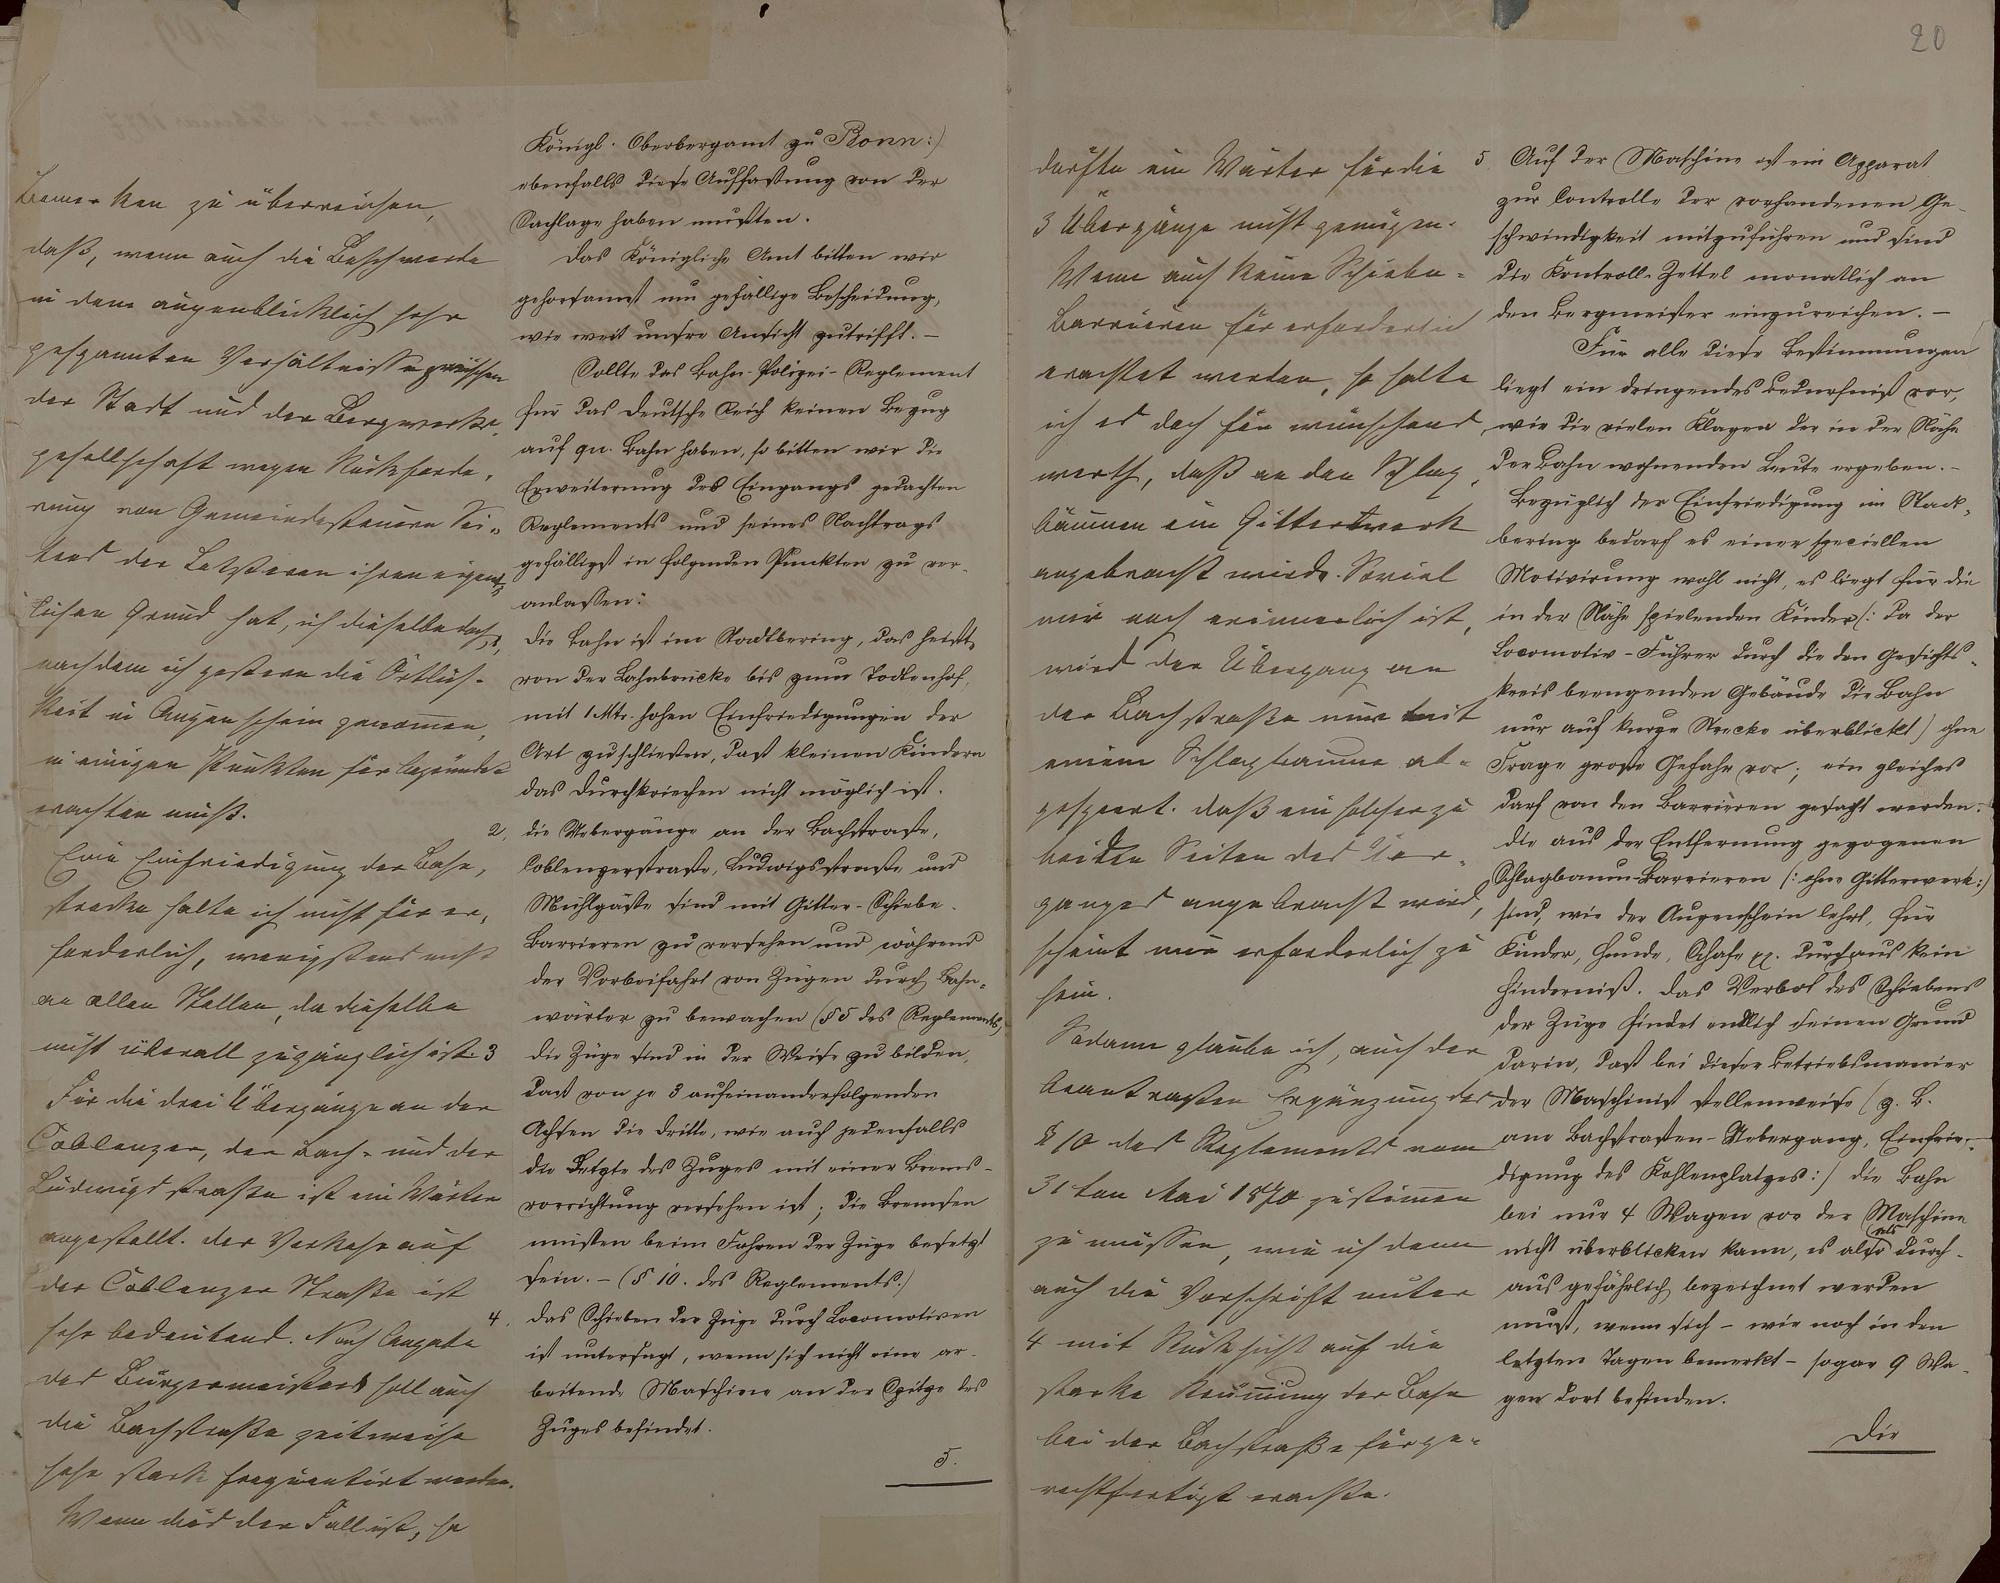 20
Bemerken zu überreichen,
daß, wenn auch die Beschwerde
in dem augenblicklich sehr
gespannten Verhältnisse zwischen
der Stadt und der Bergwerks-
gesellschaft wegen Rückforde-
rung von Gemeindesteuern Sei-
tens der Letzteren ihren eigent-
lichen Grund hat, ich dieselbe doch,
nachdem ich gestern die Örtlich-
keit in Augenschein genommen,
in einigen Punkten für begründet
erachten muß.
Eine Einfriedigung der Bahn-
strecke halte ich nicht für er-
forderlich, wenigstens nicht
an allen Stellen, da dieselbe
nicht überall zugänglich ist.
Für die drei Übergänge an der
Coblenzer, der Bach- und der
Ludwigsstraße ist ein Wärter
angestellt. Der Verkehr auf
der Coblenzer Straße ist
sehr bedeutend. Nach Angabe
des Bürgermeisters soll auch
die Bachstraße zeitweise
sehr stark frequentirt werden.
Wenn dies der Fall ist, so
Königl. Oberbergamt zu Bonn:)
ebenfalls diese Auffassung von der
Sachlage haben mußten.
Das Königliche Amt bitten wir
gehorsamst um gefällige Bescheidung,
wie weit unsre Ansicht zutrifft. –
Sollte das Bahn-Polizei-Reglement
für das Deutsche Reich keinen Bezug
auf qu. Bahn haben, so bitten wir die
Erweiterung des Eingangs gedachten
Reglements und seines Nachtrags
gefälligst in folgenden Punkten zu ver-
anlassen:
Die Bahn ist im Stadtbering, das heißt,
von der Lahnbrücke bis zum Todtenhof,
mit 1 Mtr. hohen Einfriedigungen der
Art zu schließen, daß kleinen Kindern
das Durchkriechen nicht möglich ist.
2, die Uebergänge an der Bachstraße,
Coblenzerstraße, Ludwigsstraße und
Mühlgasse sind mit Gitter-Schiebe-
Barrieren zu versehen und während
der Vorbeifahrt von Zügen durch Bahn-
wärter zu bewachen (§ 5 des Reglements)
3 die Züge sind in der Weise zu bilden,
daß von je 3 aufeinanderfolgenden
Achsen die dritte, wie auch jedenfalls
die Letzte des Zuges mit einer Brems-
vorrichtung versehen ist; die Bremsen
müssen beim Fahren der Züge besetzt
sein. – (§ 10. des Reglements.)
4. das Schieben der Züge durch Locomotiven
ist untersagt, wenn sich nicht eine ar-
beitende Maschine an der Spitze des
Zuges befindet.
5.
dürfte ein Wärter für die
3 Übergänge nicht genügen.
Wenn auch keine Schiebe-
Barrieren für erforderlich
erachtet werden, so halte
ich es doch für wünschens-
werth, daß an den Schlag-
bäumen ein Gitterwerk
angebracht wird. Soviel
mir noch erinnerlich ist,
wird der Übergang an
der Bachstraße nur mit
einem Schlagbaume ab-
gesperrt. Daß ein solcher zu
beiden Seiten des Über-
ganges angebracht wird,
scheint mir erforderlich zu
sein.
Sodann glaube ich, auch der
beantragten Ergänzung des
§ 10 des Reglements vom
31ten Mai 1870 zustimmen
zu müssen, wie ich denn
auch die Vorschrift unter
4 mit Rücksicht auf die
starke Krümmung der Bahn
bei der Bachstraße für ge-
rechtfertigt erachte.
5 Auf der Maschine ist ein Apparat
zur Controlle der vorhandenen Ge-
schwindigkeit mitzuführen und sind
die Kontroll-Zettel monatlich an
den Bergmeister einzureichen. –
Für alle diese Bestimmungen
liegt ein dringendes Bedürfniß vor,
wie die vielen Klagen der in der Nähe
der Bahn wohnenden Leute ergeben. –
Bezüglich der Einfriedigung im Stadt-
bering bedarf es einer speciellen
Motivirung wohl nicht, es liegt für die
in der Nähe spielenden Kinder (: da der
Locomotiv-Führer durch die den Gesichts-
kreis beengenden Gebäude die Bahn
nur auf kurze Strecke überblickt) ohne
Frage große Gefahr vor; ein gleiches
darf von den Barrieren gesagt werden.
Die aus der Entfernung gezogenen
Schlagbaum-Barrieren (: ohne Gitterwerk:)
sind, wie der Augenschein lehrt, für
Kinder, Hunde, Schafe pp. durchaus kein
Hinderniß. Das Verbot des Schiebens
der Züge findet endlich seinen Grund
darin, daß bei dieser Betriebsmanier
der Maschinist stellenweise (z. B.
am Bachstraßen-Uebergang, Einfrie-
digung des Kohlenplatzes:) die Bahn
bei nur 4 Wagen vor der Maschine
nicht überblicken kann, es also als durch-
aus gefährlich bezeichnet werden
muß, wenn sich – wie noch in den
letzten Tagen bemerkt – sogar 9 Wa-
gen dort befinden.
Die